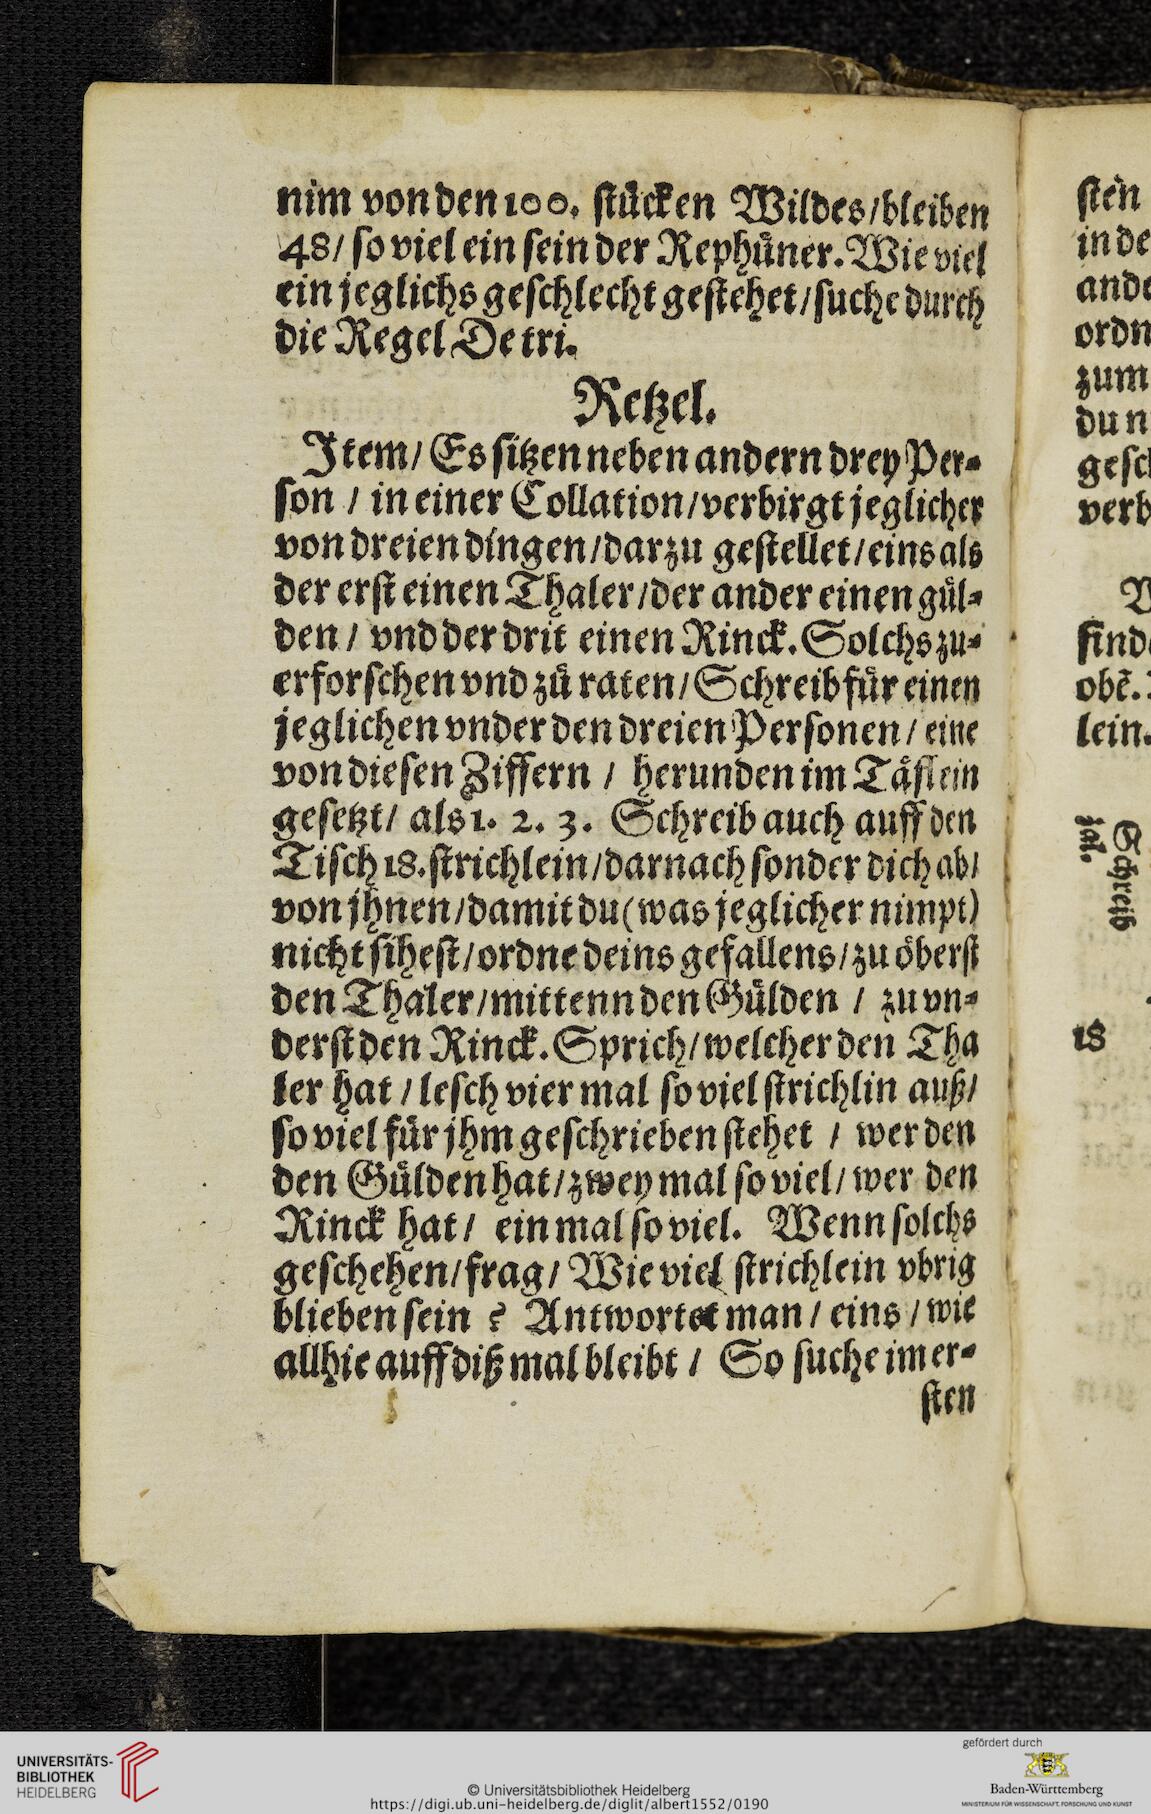 nim von den 100. stücken Wildes/bleiben
48/ so viel ein sein der Rephüner. Wie viel
ein jeglichs geschlecht gestehet/suche durch
die Regel De tri.
Retzel.
Item/ Es sitzen neben andern drey Per-
son / in einer Collation/verbirgt jeglicher
von dreien dingen/darzu gestellet/eins als
der erst einen Thaler/der ander einen gül-
den / vnd der drit einen Rinck. Solchs zu-
erforschen vnd zů raten/Schreib für einen
jeglichen vnder den dreien Personen/ eine
von diesen Ziffern / herunden im Täflein
gesetzt/ als 1. 2. 3. Schreib auch auff den
Tisch 18. strichlein/darnach sonder dich ab/
von jhnen/damit du (was jeglicher nimpt)
nicht sihest/ordne deins gefallens/zu öberst
den Thaler/mittenn den Gülden / zu vn-
derst den Rinck. Sprich/welcher den Tha
ler hat / lesch vier mal so viel strichlin auß/
so viel für jhm geschrieben stehet / wer den
den Gülden hat/zwey mal so viel/ wer den
Rinck hat/ ein mal so viel. Wenn solchs
geschehen/frag/ Wie viel strichlein vbrig
blieben sein ? Antwortet man / eins / wie
allhie auff diß mal bleibt / So suche im er-
sten
sten
in de
ande
ordn
zum
du n
gesch
verb
find
obẽ.
lein.
Schreib
zal.
18
UNIVERSITÄTS-
BIBLIOTHEK
HEIDELBERG
© Universitätsbibliothek Heidelberg
https://digi.ub.uni-heidelberg.de/diglit/albert1552/0190
gefördert durch
Baden-Württemberg
MINISTERIUM FÜR WISSENSCHAFT, FORSCHUNG UND KUNST